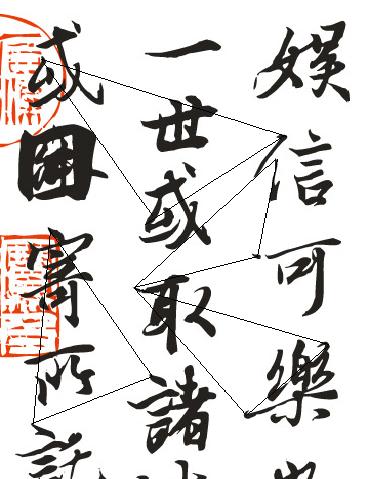 娛信可樂
一世或取諸
或因寄所託